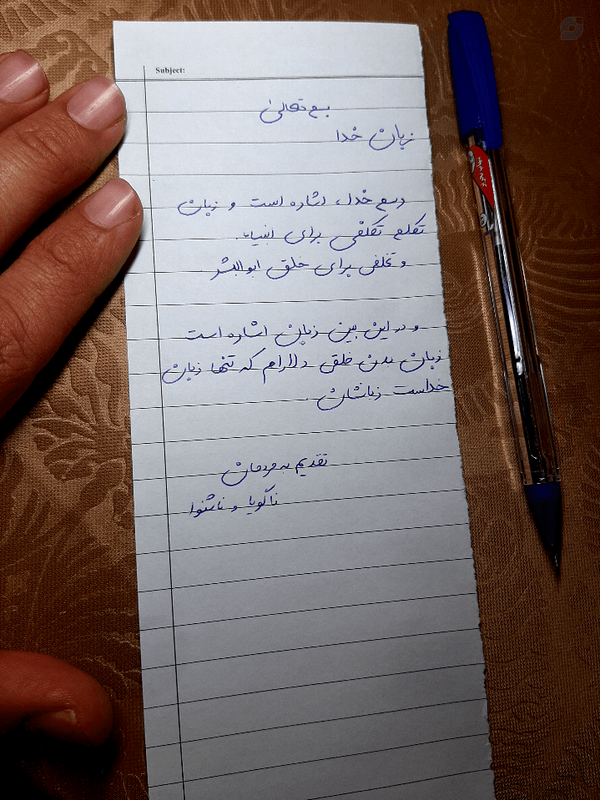 Subject:
بسم تعالی
زبان خدا
رسم خدا، اشاره است و زبان
تکلم تکلفی برای انبیاء.
و تخلص برای خلق ابوالبشر
و در این بین زبان اشاره است
زبان بدن خلقی دلارام که تنها زبان
خداست زبانشان.
تقدیم به مردمان
ناگویا و ناشنوا